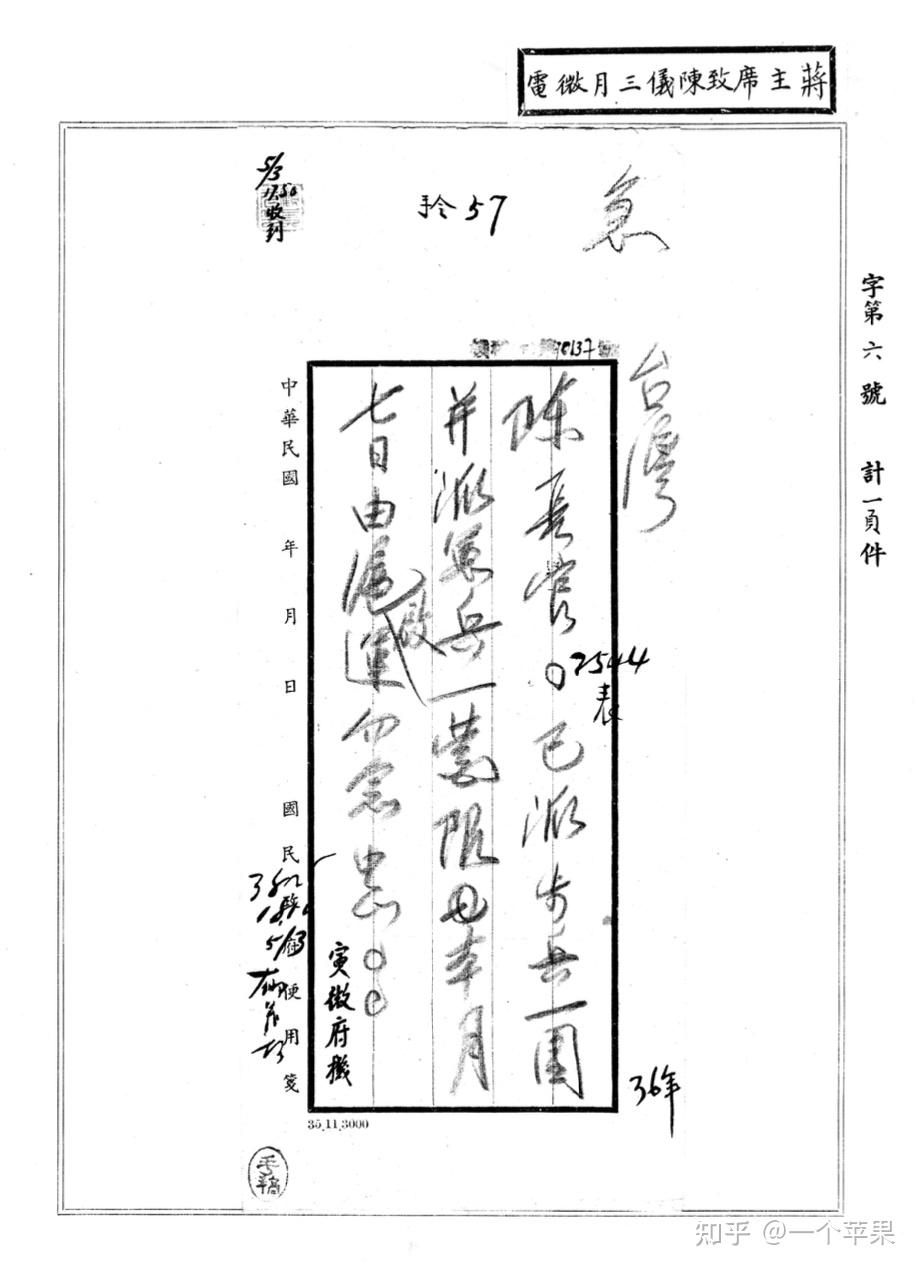 蔣主席致陳儀三月微電
字第六號 計一頁件
急
手令57
5/3
收到
台灣
0137
陳長官〇已派步兵一團
2544
表
并派憲兵一營限本月
七日由滬啟運勿念中正〇〇
寅微府機
36年
中華民國 年 月 日 國民 便用箋
35,11,3000
手稿
知乎 @一个苹果